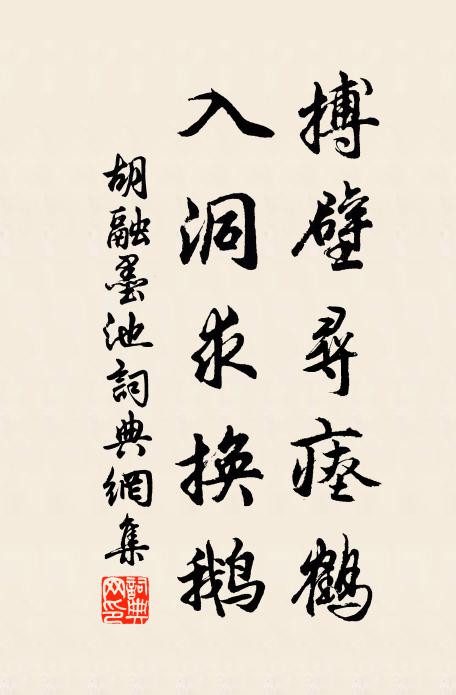 搏壁尋瘞鶴
入洞求換鵝
胡融墨池詞典網集
詞典網印